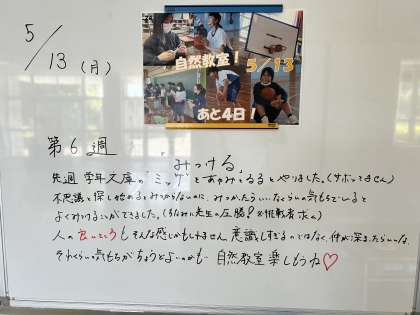 5/13 (月)
自然教室!
5/13
あと4日!
第6週
"みつける"
先週 学年文庫の"ミッケ"を やりました。(サボってません)
不思議と探し始めるとみつからないのに、みつかったらいいなくらいの気もちでいると
よくみつけることができました。(ちなみに先生の圧勝? ※挑戦者求ム)
人の良いところもそんな感じかもしれません。意識しすぎるのではなく、仲が深まったらいいな、
それくらいの気もちがちょうどよいのかも… 自然教室楽しもうね♡